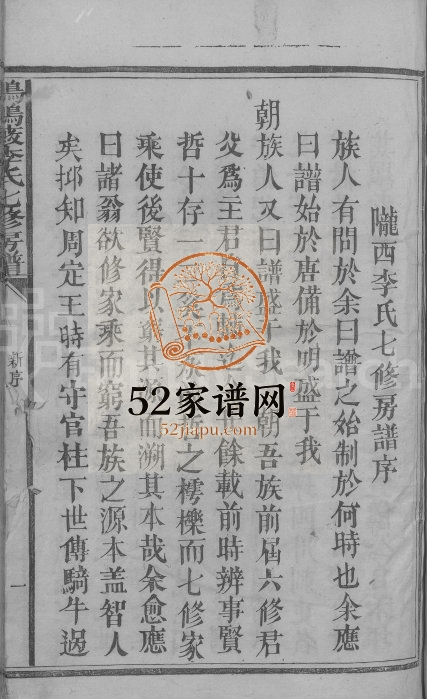 隴西李氏七修房譜序
族人有問於余曰譜之始制於何時也余應
曰譜始於唐備於明盛于我
朝族人又曰譜盛于我朝吾族前屆六修君
父爲主君餘載前時辨事賢
哲十存一之樗櫟而七修家
乘使後賢得以窮其而溯其本哉余愈應
曰諸翁欲修家乘而窮吾族之源本盖智人
矣抑知周定王時有守官柱下世傳騎牛過
李氏七修房譜
新序
一
52家谱网
52jiapu.com